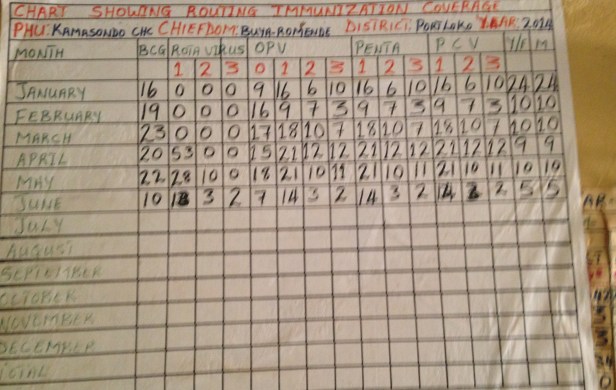 CHART SHOWING ROUTING IMMUNIZATION COVERAGE
PHU: KAMASONDO CHC CHIEFDOM: BUYA-ROMENDE DISTRICT: PORTLOKO YEAR: 2014
MONTH BCG ROTA VIRUS OPV PENTA PCV Y/F M
1 2 3 0 1 2 3 1 2 3 1 2 3
JANUARY 16 0 0 0 9 16 6 10 16 6 10 16 6 10 24 24
FEBRUARY 19 0 0 0 16 9 7 3 9 7 3 9 7 3 10 10
MARCH 23 0 0 0 17 18 10 7 18 10 7 18 10 7 10 10
APRIL 20 53 0 0 15 21 12 12 21 12 12 21 12 12 9 9
MAY 22 28 10 0 18 21 10 11 21 10 11 21 10 11 10 10
JUNE 10 18 3 2 7 14 3 2 14 3 2 14 3 2 5 5
JULY
AUGUST
SEPTEMBER
OCTOBER
NOVEMBER
DECEMBER
TOTAL